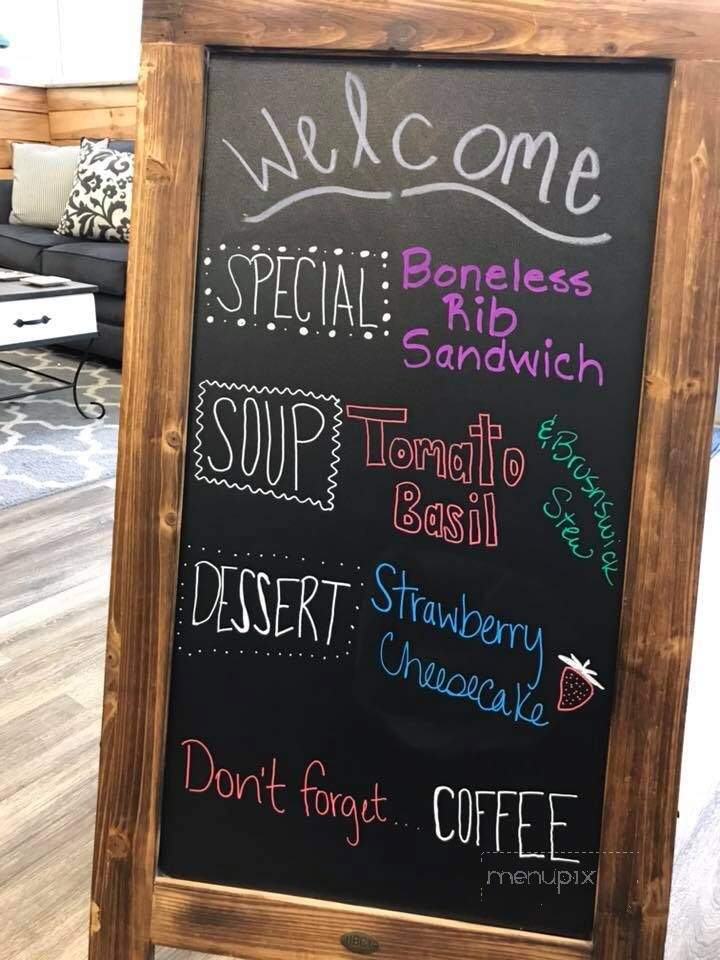 Welcome
SPECIAL: Boneless
Rib
Sandwich
SOUP Tomato
Basil
& Brusnswick
Stew
DESSERT: Strawberry
Cheesecake
Don't forget.... COFFEE
menupix